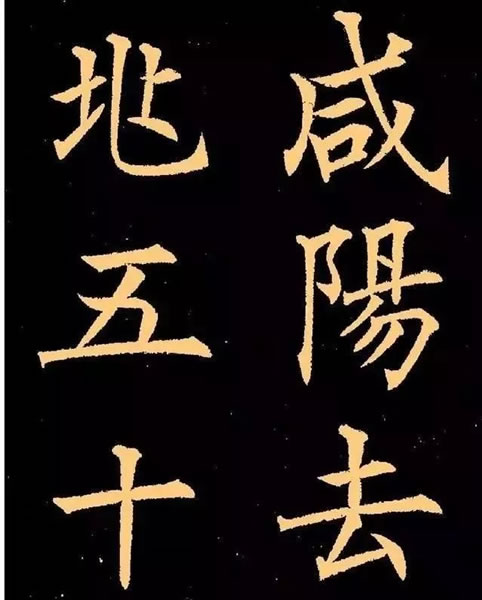 咸陽去
此五十